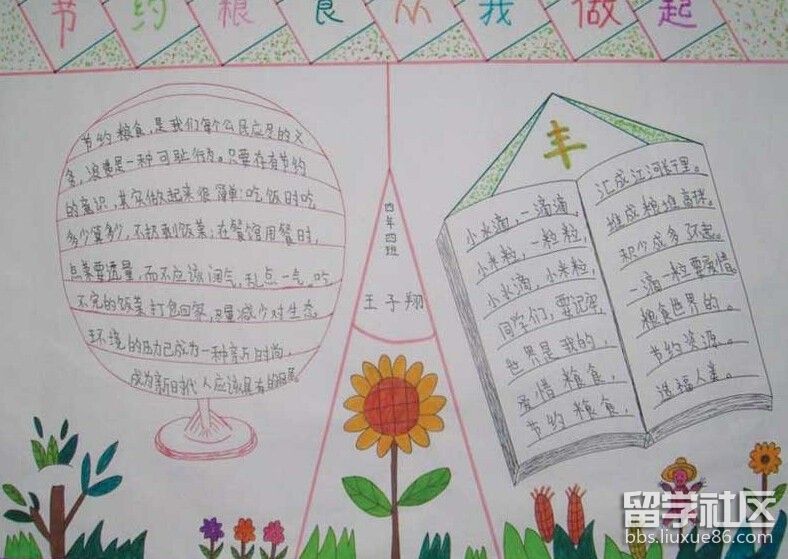 节约粮食从我做起
节约粮食,是我们每个公民应尽的义
务,浪费是一种可耻行为。只要存有节约
的意识,其实做起来很简单:吃饭时吃
多少算多少,不扔剩饭菜;在餐馆用餐时,
点菜要适量,而不应该阔气,乱点一气。吃
不完的饭菜打包回家,尽量减少对生态
环境的压力已成为一种育时尚,
成为新时代人应该具有的
四年四班
王子翔
丰
小水滴,一滴滴,
小米粒,一粒粒,
小水滴,小米粒,
同学们,要记牢,
世界是我的,
爱惜粮食,
节约粮食,
汇成江河行千里。
堆成粮堆高
积少成多了不起。
一滴一粒要爱惜。
粮食世界的。
节约资源。
造福人类。
留学社区
bbs.liuxue86.com